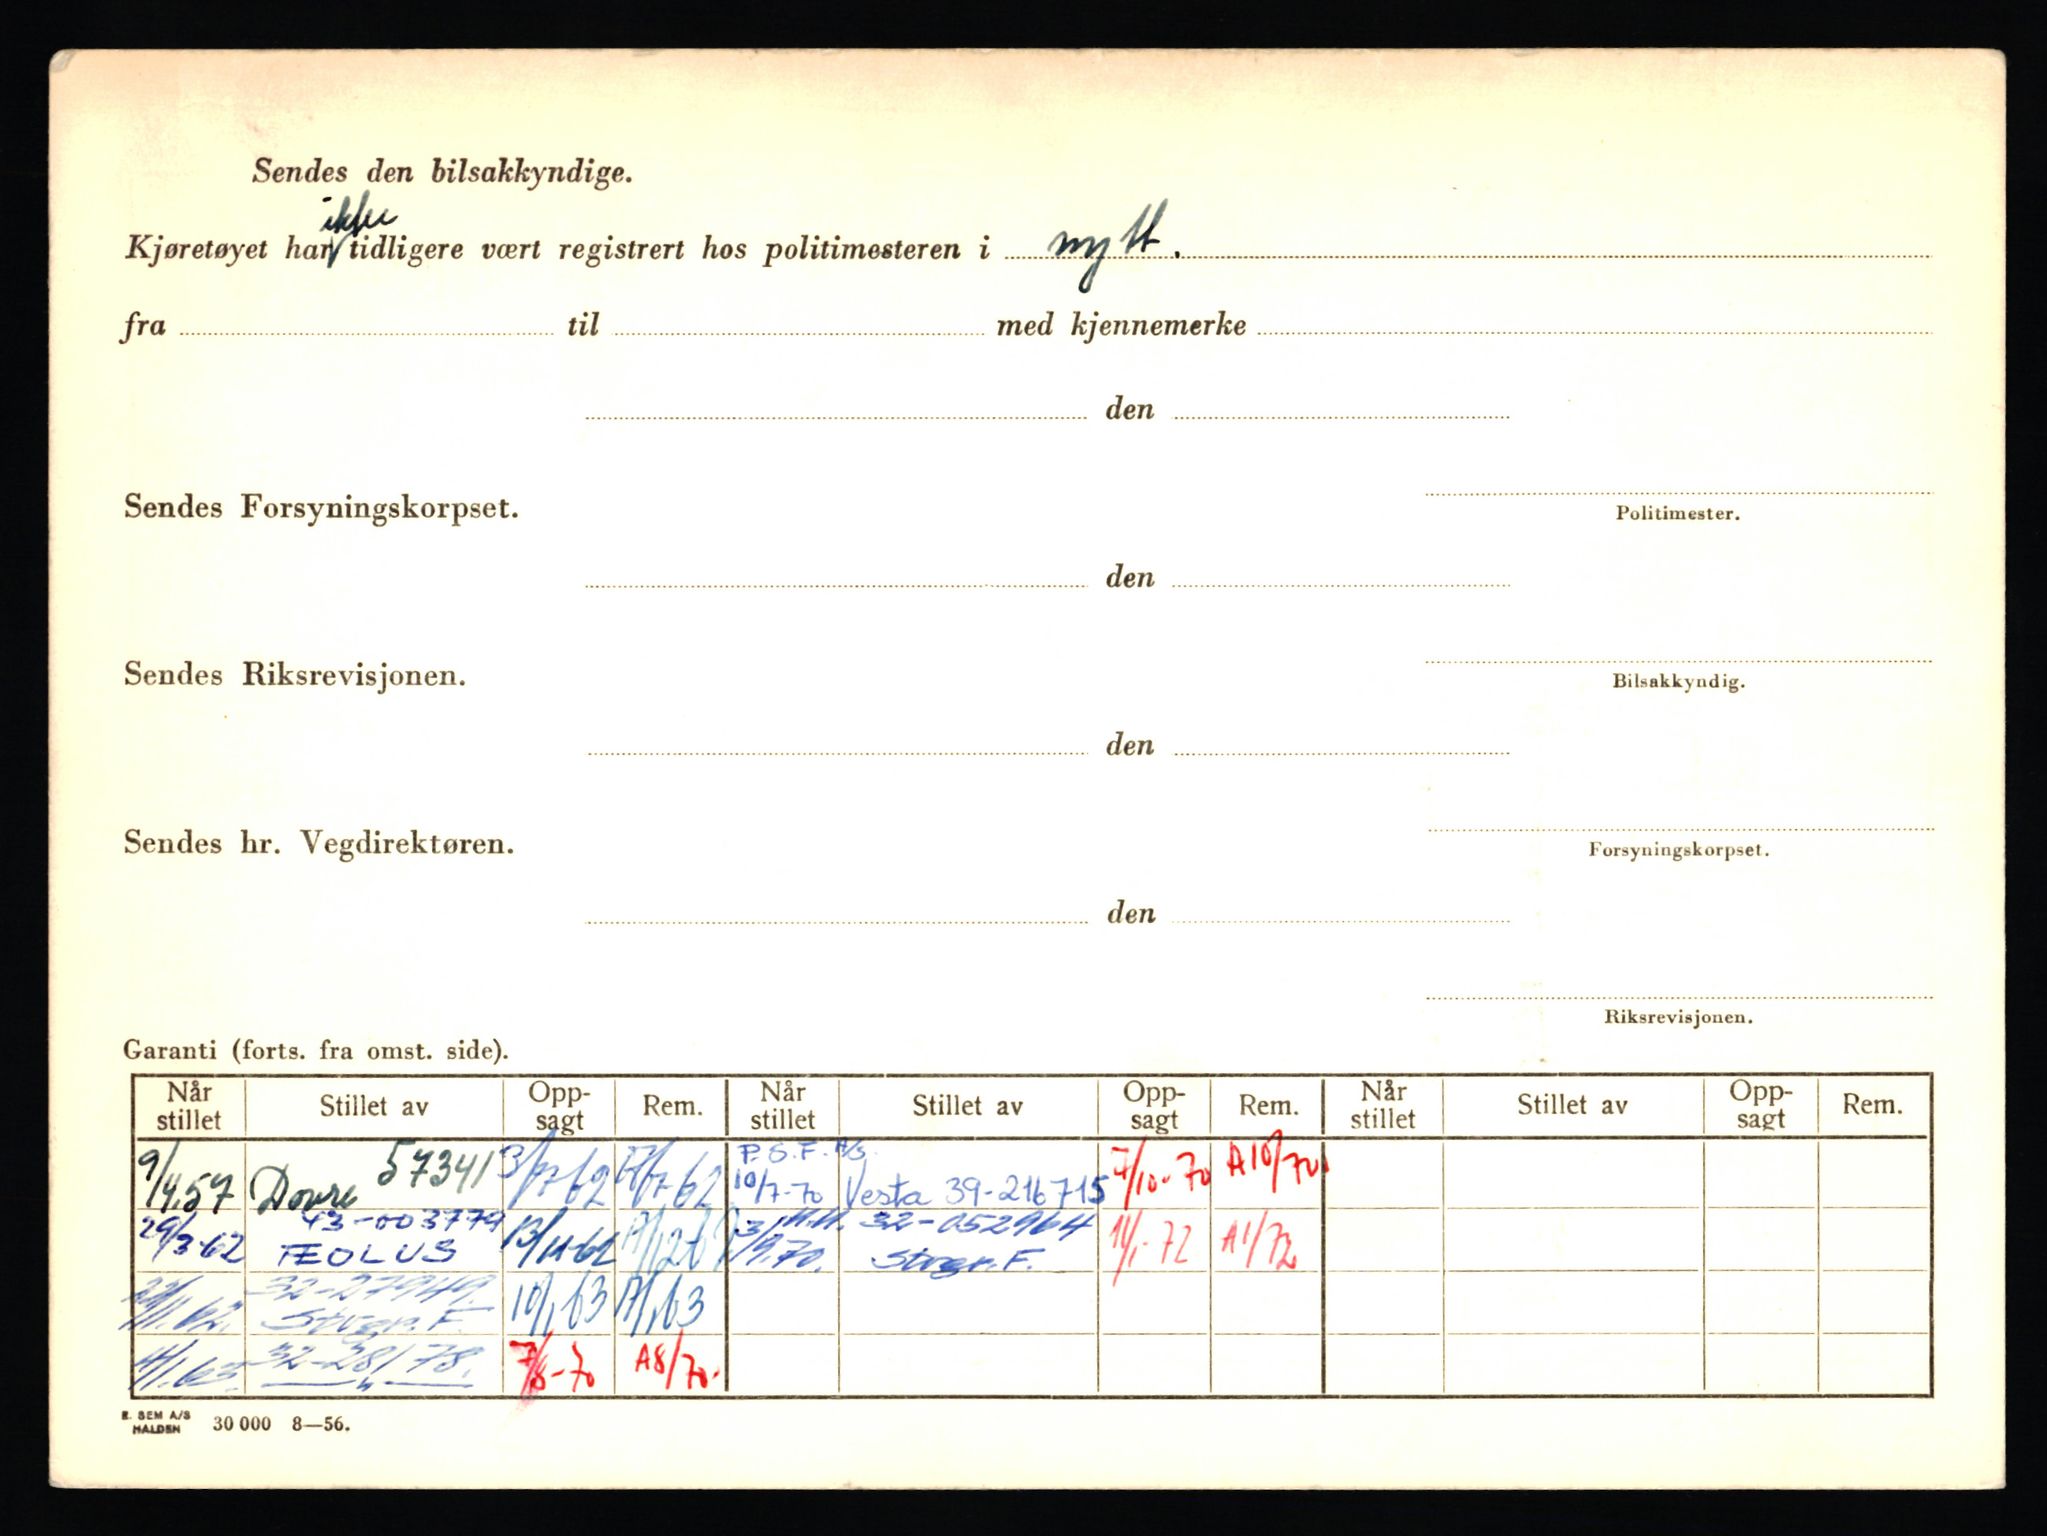 Sendes den bilsakkyndige.
ikke
Kjøretøyet har tidligere vært registrert hos politimesteren i nytt.
fra til med kjennemerke
den
Sendes Forsyningskorpset.
Politimester.
den
Sendes Riksrevisjonen.
Bilsakkyndig.
den
Sendes hr. Vegdirektøren.
Forsyningskorpset.
den
Riksrevisjonen.
Garanti (forts. fra omst. side).
Når stillet Stillet av Opp-sagt Rem. Når stillet Stillet av Opp-sagt Rem. Når stillet Stillet av Opp-sagt Rem.
9/4.57 Dovre 57341 3/7 62 17/7 62 P.S.F. A/S 10/7-70 Vesta 39-216715 7/10-70 A10/70
29/3-62 43-003779 ÆOLUS 13/11-62 32-052964 Storgr. F. 11/1-72 A1/72
32-27949. Storgr. F. 10/1 63 17/1 63
11/1.63 32-28178. 7/8-70 A8/70.
E. SEM A/S
HALDEN 30 000 8—56.